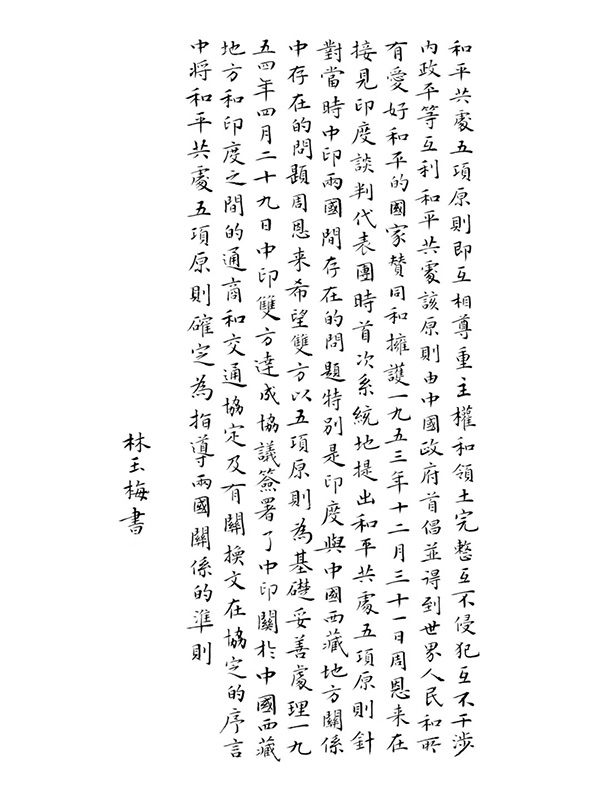 和平共處五項原則即互相尊重主權和領土完整互不侵犯互不干涉
内政平等互利和平共處該原則由中國政府首倡並得到世界人民和所
有愛好和平的國家贊同和擁護一九五三年十二月三十一日周恩来在
接見印度談判代表團時首次系統地提出和平共處五項原則針
對當時中印兩國間存在的問題特别是印度與中國西藏地方關係
中存在的問題周恩来希望雙方以五項原則為基礎妥善處理一九
五四年四月二十九日中印雙方達成協議簽署了中印關於中國西藏
地方和印度之間的通商和交通協定及有關換文在協定的序言
中将和平共處五項原則確定為指導兩國關係的準則
林玉梅書